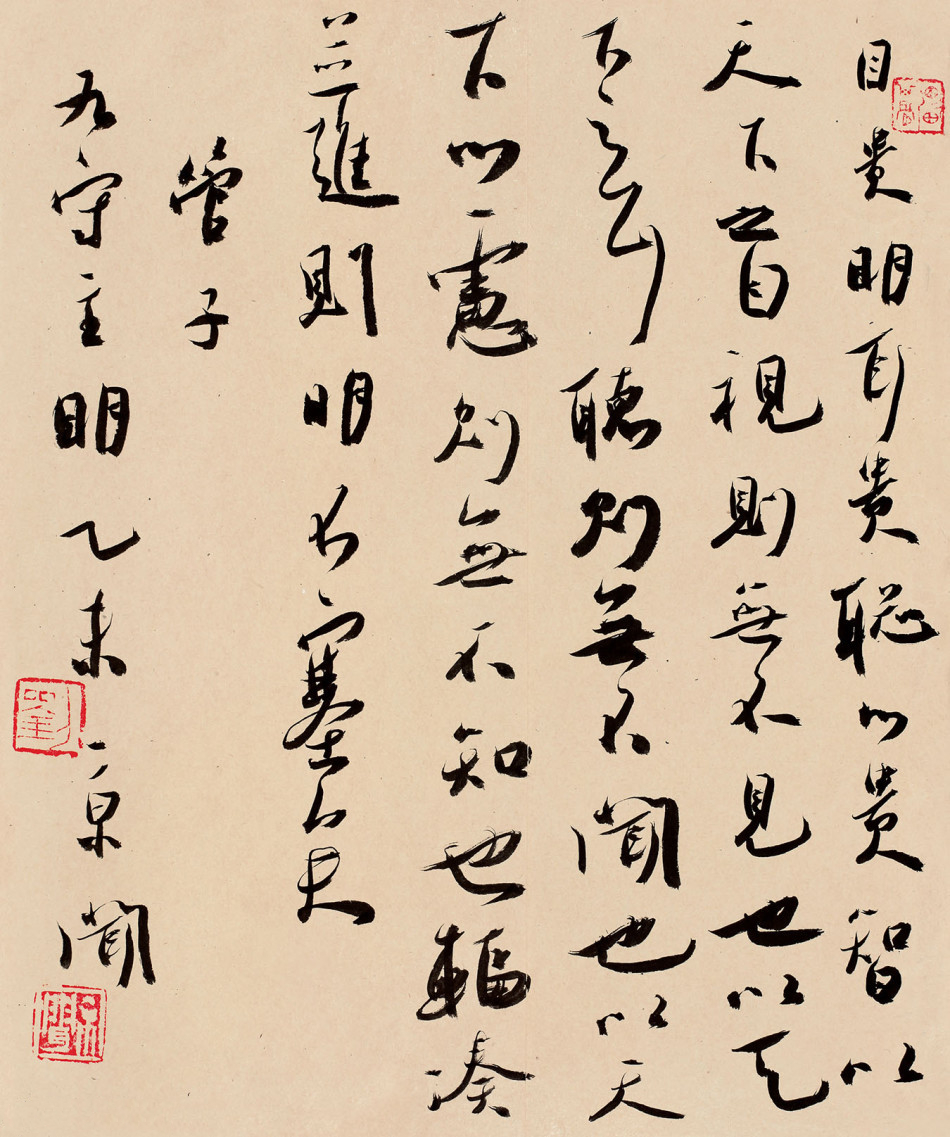 目貴明耳貴聰心貴智以
天下之目視則無不見也以天
下之耳聽則無不聞也以天
下心慮則無不知也輻湊
並進則明不塞矣
管子
九守主明乙未京聞
劉